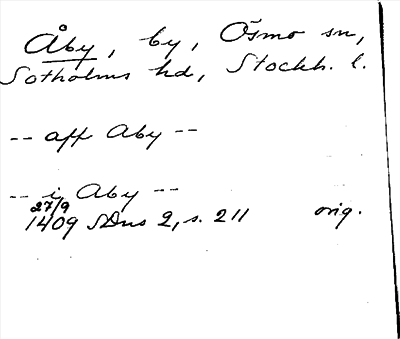 Åby, by, Ösmo sn,
Sotholms hd, Stockh. l.
-- aff Aby --
-- i Aby --
27/9
1409 SDns 2, s. 211 orig.